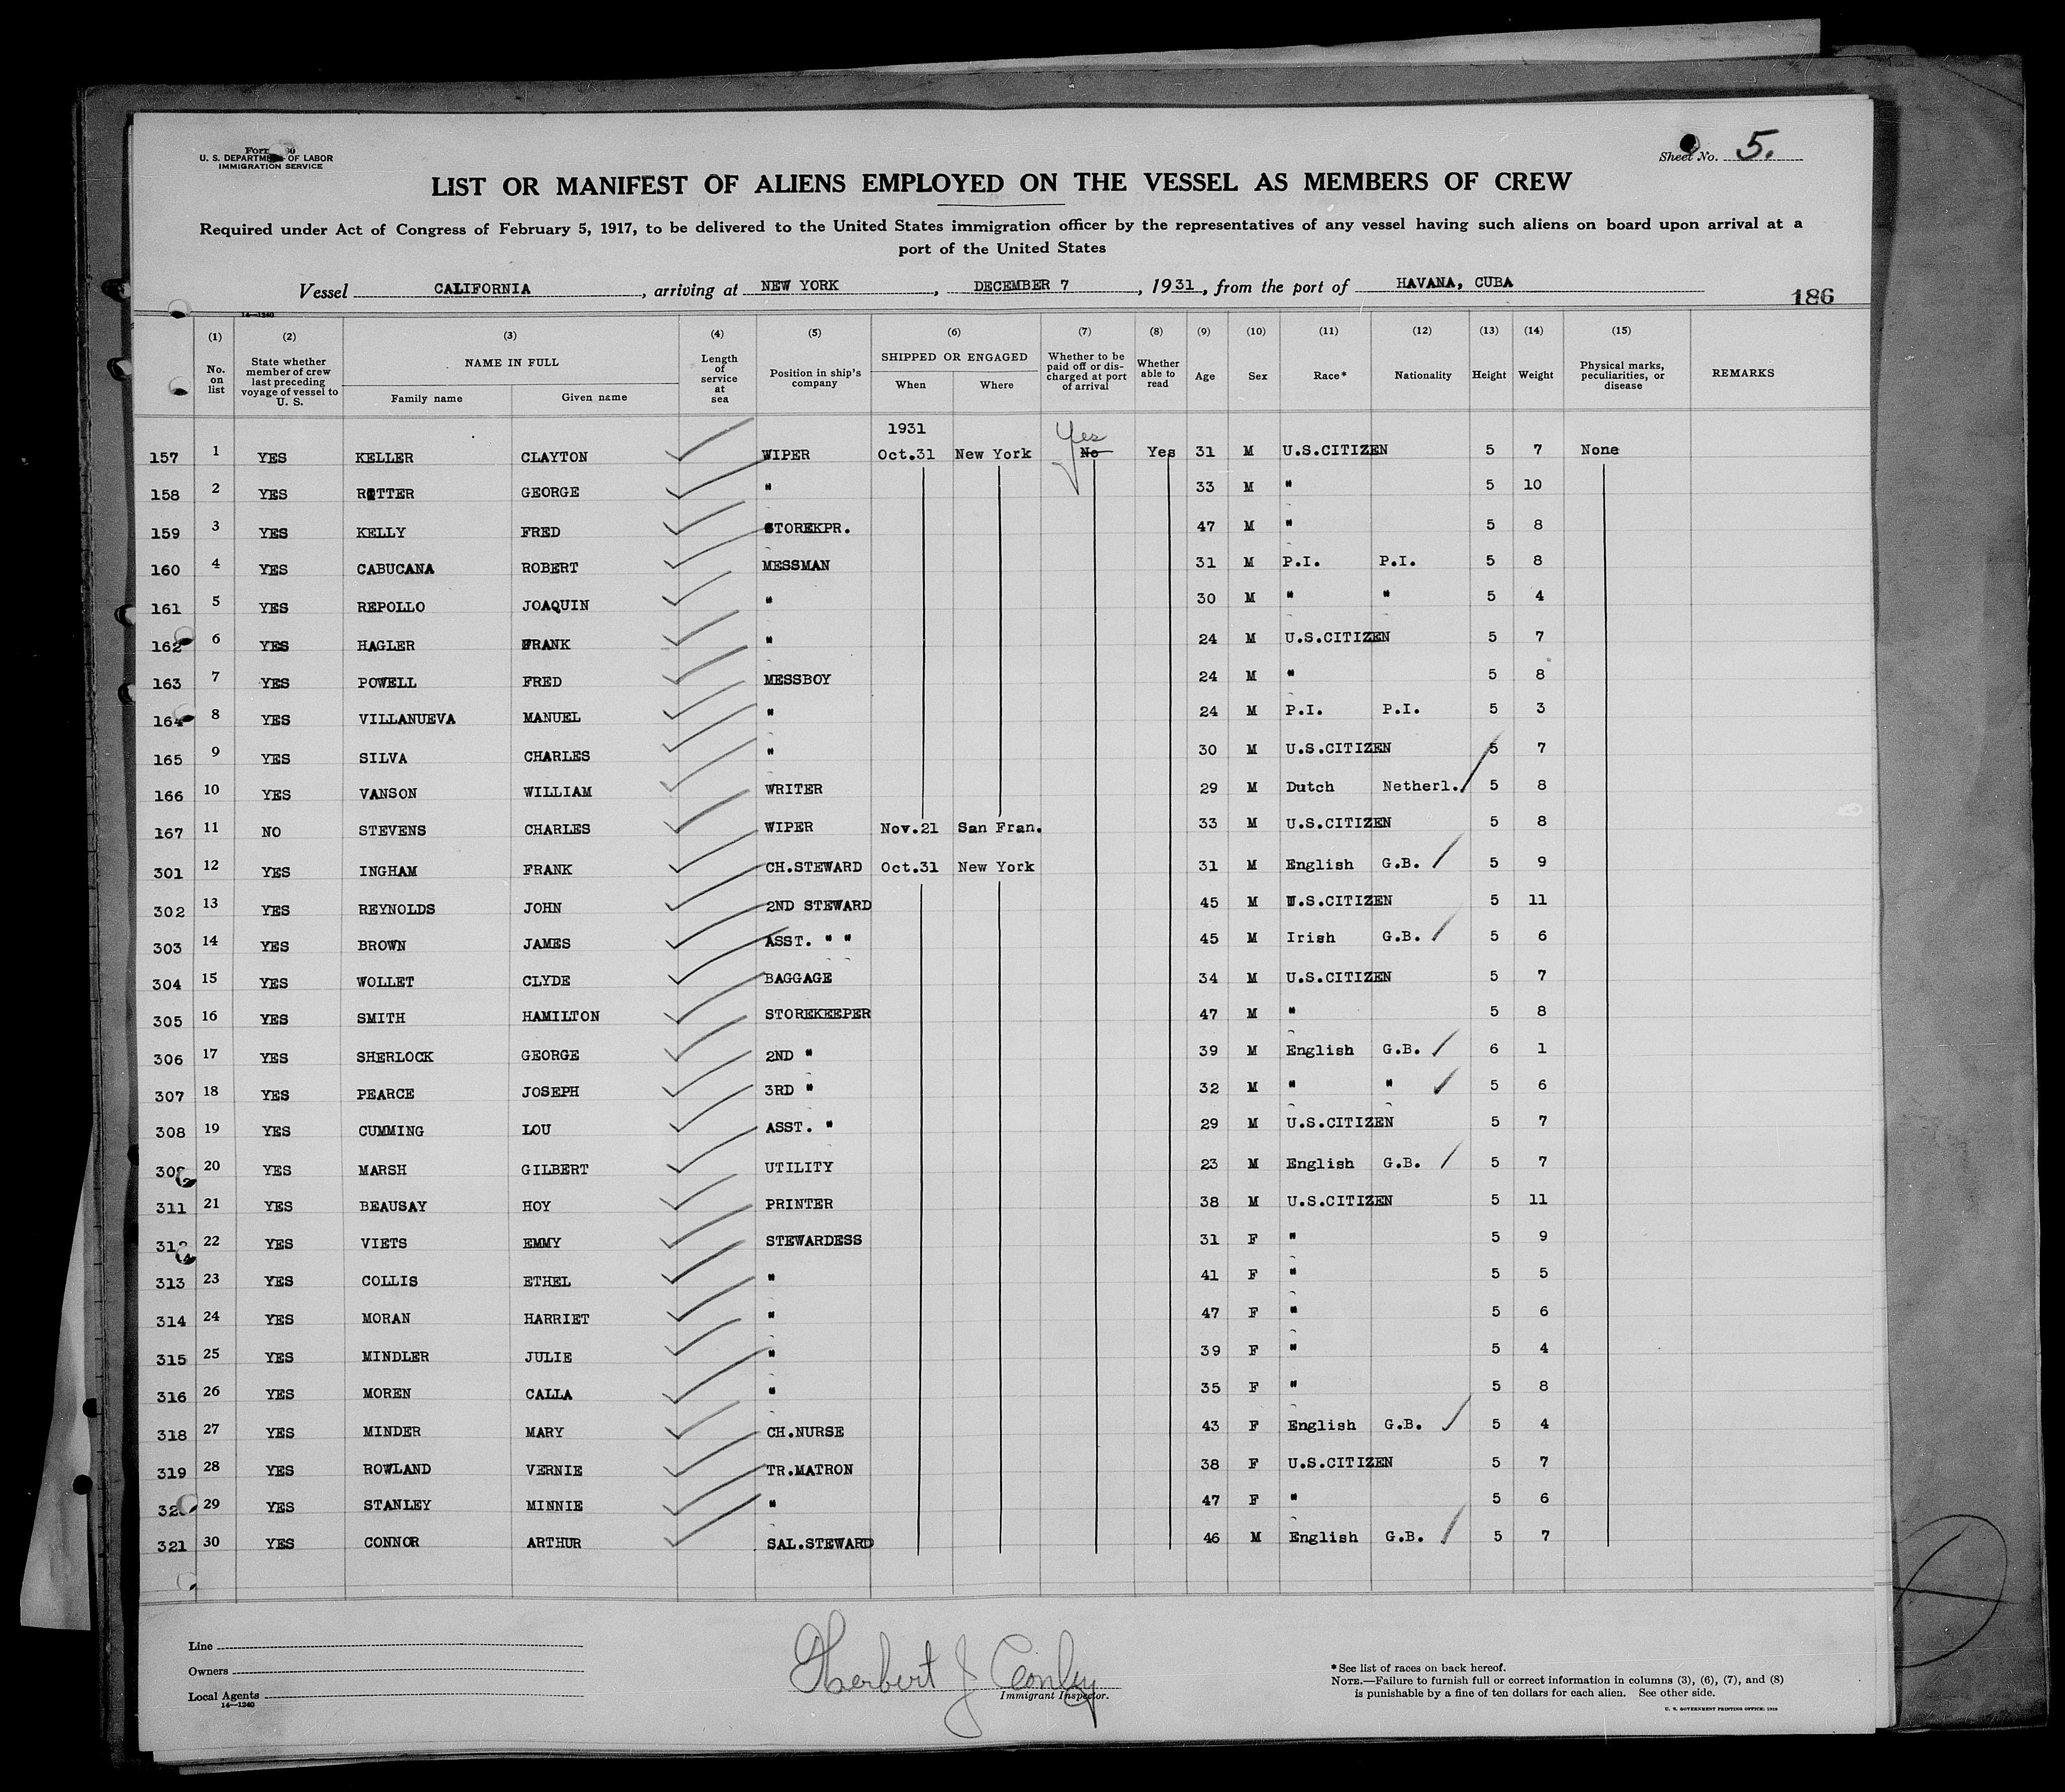 Form
U. S. DEPARTMENT OF LABOR
IMMIGRATION SERVICE
Sheet No. 5.
LIST OR MANIFEST OF ALIENS EMPLOYED ON THE VESSEL AS MEMBERS OF CREW
Required under Act of Congress of February 5, 1917, to be delivered to the United States immigration officer by the representatives of any vessel having such aliens on board upon arrival at a
port of the United States
Vessel CALIFORNIA, arriving at NEW YORK, DECEMBER 7, 1931, from the port of HAVANA, CUBA
186
14—1240
(1) (2) (3) (4) (5) (6) (7) (8) (9) (10) (11) (12) (13) (14) (15)
No. on list | State whether member of crew last preceding voyage of vessel to U. S. | NAME IN FULL | Family name | Given name | Length of service at sea | Position in ship's company | SHIPPED OR ENGAGED | When | Where | Whether to be paid off or discharged at port of arrival | Whether able to read | Age | Sex | Race* | Nationality | Height | Weight | Physical marks, peculiarities, or disease | REMARKS
1931 Yes
157 1 YES KELLER CLAYTON WIPER Oct.31 New York No Yes 31 M U.S.CITIZEN 5 7 None
158 2 YES GEORGE " 33 M " 5 10
159 3 YES KELLY FRED STOREKPR. 47 M " 5 8
160 4 YES CABUCANA ROBERT MESSMAN 31 M P.I. P.I. 5 8
161 5 YES REPOLLO JOAQUIN " 30 M " " 5 4
162 6 YES HAGLER FRANK " 24 M U.S.CITIZEN 5 7
163 7 YES POWELL FRED MESSBOY 24 M " 5 8
164 8 YES VILLANUEVA MANUEL " 24 M P.I. P.I. 5 3
165 9 YES SILVA CHARLES " 30 M U.S.CITIZEN 5 7
166 10 YES VANSON WILLIAM WRITER 29 M Dutch Netherl. 5 8
167 11 NO STEVENS CHARLES WIPER Nov.21 San Fran. 33 M U.S.CITIZEN 5 8
301 12 YES INGHAM FRANK CH.STEWARD Oct.31 New York 31 M English G.B. 5 9
302 13 YES REYNOLDS JOHN 2ND STEWARD 45 M U.S.CITIZEN 5 11
303 14 YES BROWN JAMES ASST. " " 45 M Irish G.B. 5 6
304 15 YES WOLLET CLYDE BAGGAGE 34 M U.S.CITIZEN 5 7
305 16 YES SMITH HAMILTON STOREKEEPER 47 M " 5 8
306 17 YES SHERLOCK GEORGE 2ND " 39 M English G.B. 6 1
307 18 YES PEARCE JOSEPH 3RD " 32 M " " 5 6
308 19 YES CUMMING LOU ASST. " 29 M U.S.CITIZEN 5 7
20 YES MARSH GILBERT UTILITY 23 M English G.B. 5 7
311 21 YES BEAUSAY HOY PRINTER 38 M U.S.CITIZEN 5 11
22 YES VIETS EMMY STEWARDESS 31 F " 5 9
313 23 YES COLLIS ETHEL " 41 F " 5 5
314 24 YES MORAN HARRIET " 47 F " 5 6
315 25 YES MINDLER JULIE " 39 F " 5 4
316 26 YES MOREN CALLA " 35 F " 5 8
318 27 YES MINDER MARY CH.NURSE 43 F English G.B. 5 4
319 28 YES ROWLAND VERNIE TR.MATRON 38 F U.S.CITIZEN 5 7
29 YES STANLEY MINNIE " 47 F " 5 6
321 30 YES CONNOR ARTHUR SAL.STEWARD 46 M English G.B. 5 7
Line
Owners
Local Agents
14—1240
Herbert J
Immigrant Inspector.
*See list of races on back hereof.
NOTE.—Failure to furnish full or correct information in columns (3), (6), (7), and (8)
is punishable by a fine of ten dollars for each alien. See other side.
U. S. GOVERNMENT PRINTING OFFICE: